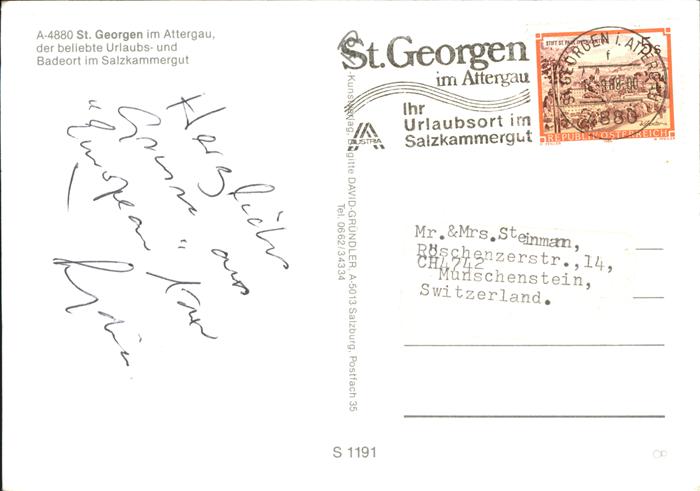 A-4880 St. Georgen im Attergau,
der beliebte Urlaubs- und
Badeort im Salzkammergut
Herzliche
Grüsse aus
"European"
St. Georgen
im Attergau
Ihr
Urlaubsort im
Salzkammergut
AUSTRIA
ST. GEORGEN I. ATTERGAU
f
4880
5s
STIFT ST. PAUL IM LAVANTTAL
REPUBLIK ÖSTERREICH
Kunstverlag Brigitte DAVID-GRÜNDLER, A-5013 Salzburg, Postfach 35
Tel. 0662/34334
Mr.&Mrs.Steinmann,
Röschenzerstr.,14,
CH4742
Munschenstein,
Switzerland.
S 1191